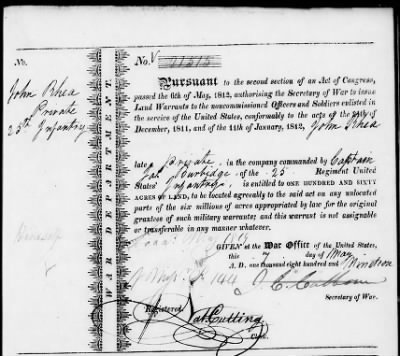 No.
John Rhea
Private
25th Infantry
WAR DEPARTMENT.
No. 21515
Pursuant to the second section of an Act of Congress,
passed the 6th of May, 1812, authorising the Secretary of War to issue
Land Warrants to the noncommissioned Officers and Soldiers enlisted in
the service of the United States, conformably to the acts of the
December, 1811, and of the 11th of January, 1812, John Rhea
late a Private in the company commanded by Captain
Burbidge of the 25 Regiment United
States' Infantry, is entitled to ONE HUNDRED AND SIXTY
ACRES OF LAND, to be located agreeably to the said act on any unlocated
parts of the six millions of acres appropriated by law for the original
grantees of such military warrants; and this warrant is not assignable
or transferable in any manner whatever.
GIVEN at the War Office of the United States,
this 7 day of May
A. D. one thousand eight hundred and Nineteen
J. C. Calhoun
Secretary of War.
Registered Nat Cutting
Clerk.